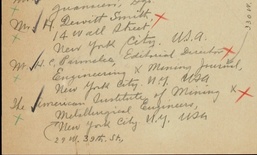 Mr. H. Dewitt Smith,
14 Wall Street,
New York City, U.S.A.
Mr. H.C. Parmelee, Editorial Director
Engineering & Mining Journal,
New York City, N.Y. USA
The American Institute of Mining &
Metallurgical Engineers,
New York City N.Y. USA
29 W. 39th. St.